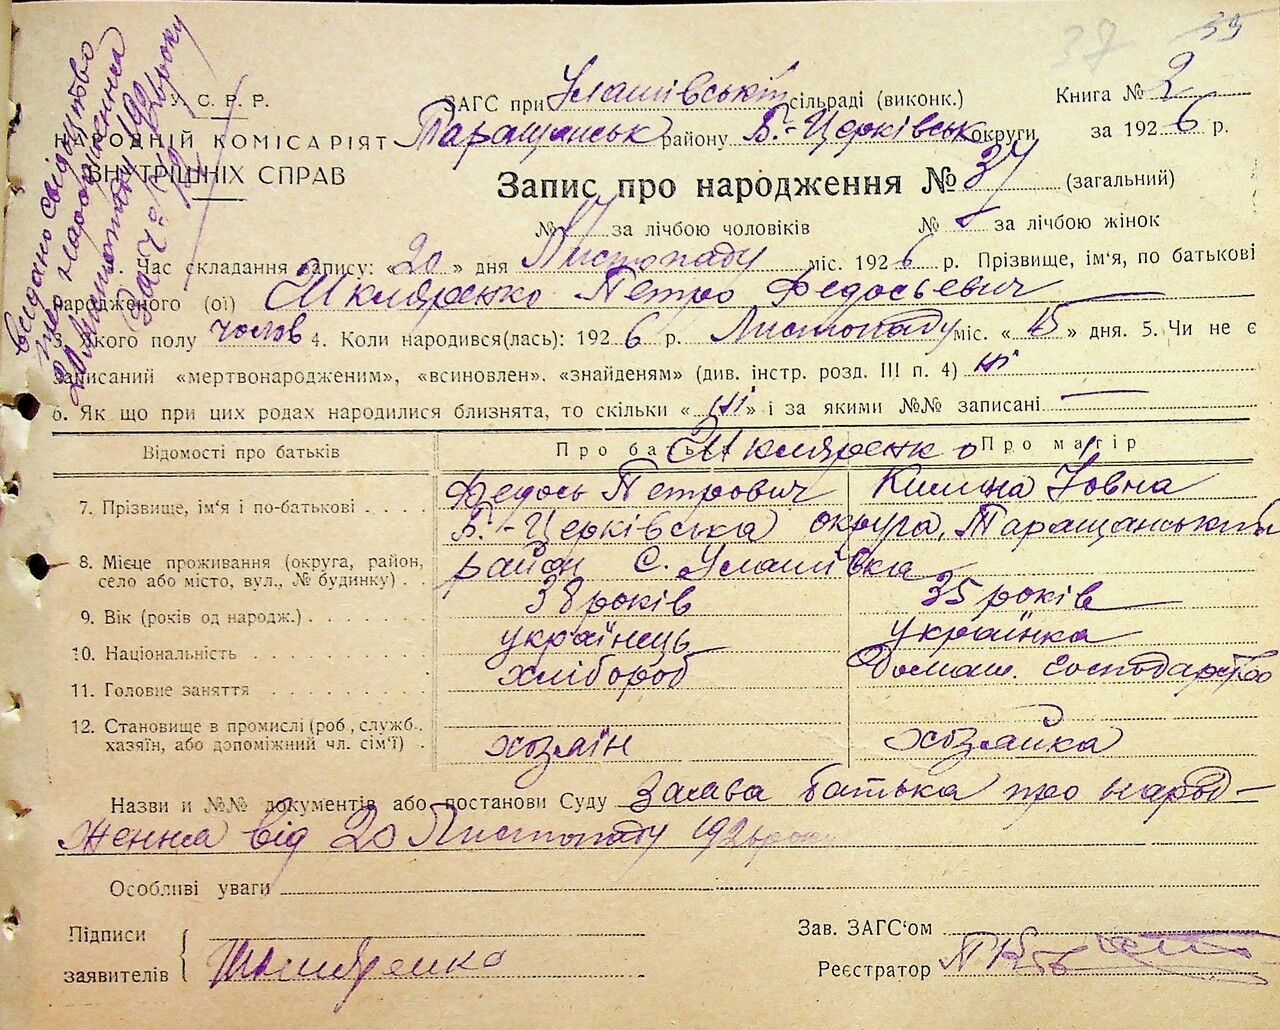 37 35
видано свідоцтво
про народження
20 Листопаду 1926 року
за ч.
У. С. Р. Р.
НАРОДНІЙ КОМІСАРІЯТ
ВНУТРІШНІХ СПРАВ
ЗАГС при Улашівській сільраді (виконк.) Книга № 2
Таращанськ району Б.-Церківськ округи за 1926 р.
Запис про народження № 37 (загальний)
№ 17 за лічбою чоловіків № за лічбою жінок
Час складання запису: «20» дня Листопаду міс. 1926 р. Прізвище, ім'я, по батькові
народженого (ої) Шкляренко Петро Федосьевич
3. Якого полу чолов 4. Коли народився(лась): 1926 р. Листопаду міс. «15» дня. 5. Чи не є
записаний «мертвонародженим», «всиновлен», «знайденям» (див. інстр. розд. III п. 4) ні
6. Як що при цих родах народилися близнята, то скільки «ні» і за якими №№ записані
Відомості про батьків Про батька Про матір
Шкляренко
7. Прізвище, ім'я і по-батькові Федось Петрович Килина Іовна
Б.-Церківська округа, Таращанський
8. Місце проживання (округа, район, район С. Улашівка
село або місто, вул., № будинку)
9. Вік (років од народж.) 38 років 35 років
10. Національність українець українка
11. Головне заняття хлібороб домаш. господарство
12. Становище в промислі (роб., служб.,
хазяїн, або допоміжний чл. сім'ї) хозяїн хозяйка
Назви и №№ документів або постанови Суду Заява батька про народ-
ження від 20 Листопаду 1926 року
Особливі уваги
Підписи Зав. ЗАГС'ом
заявителів Шкляренко Реєстратор